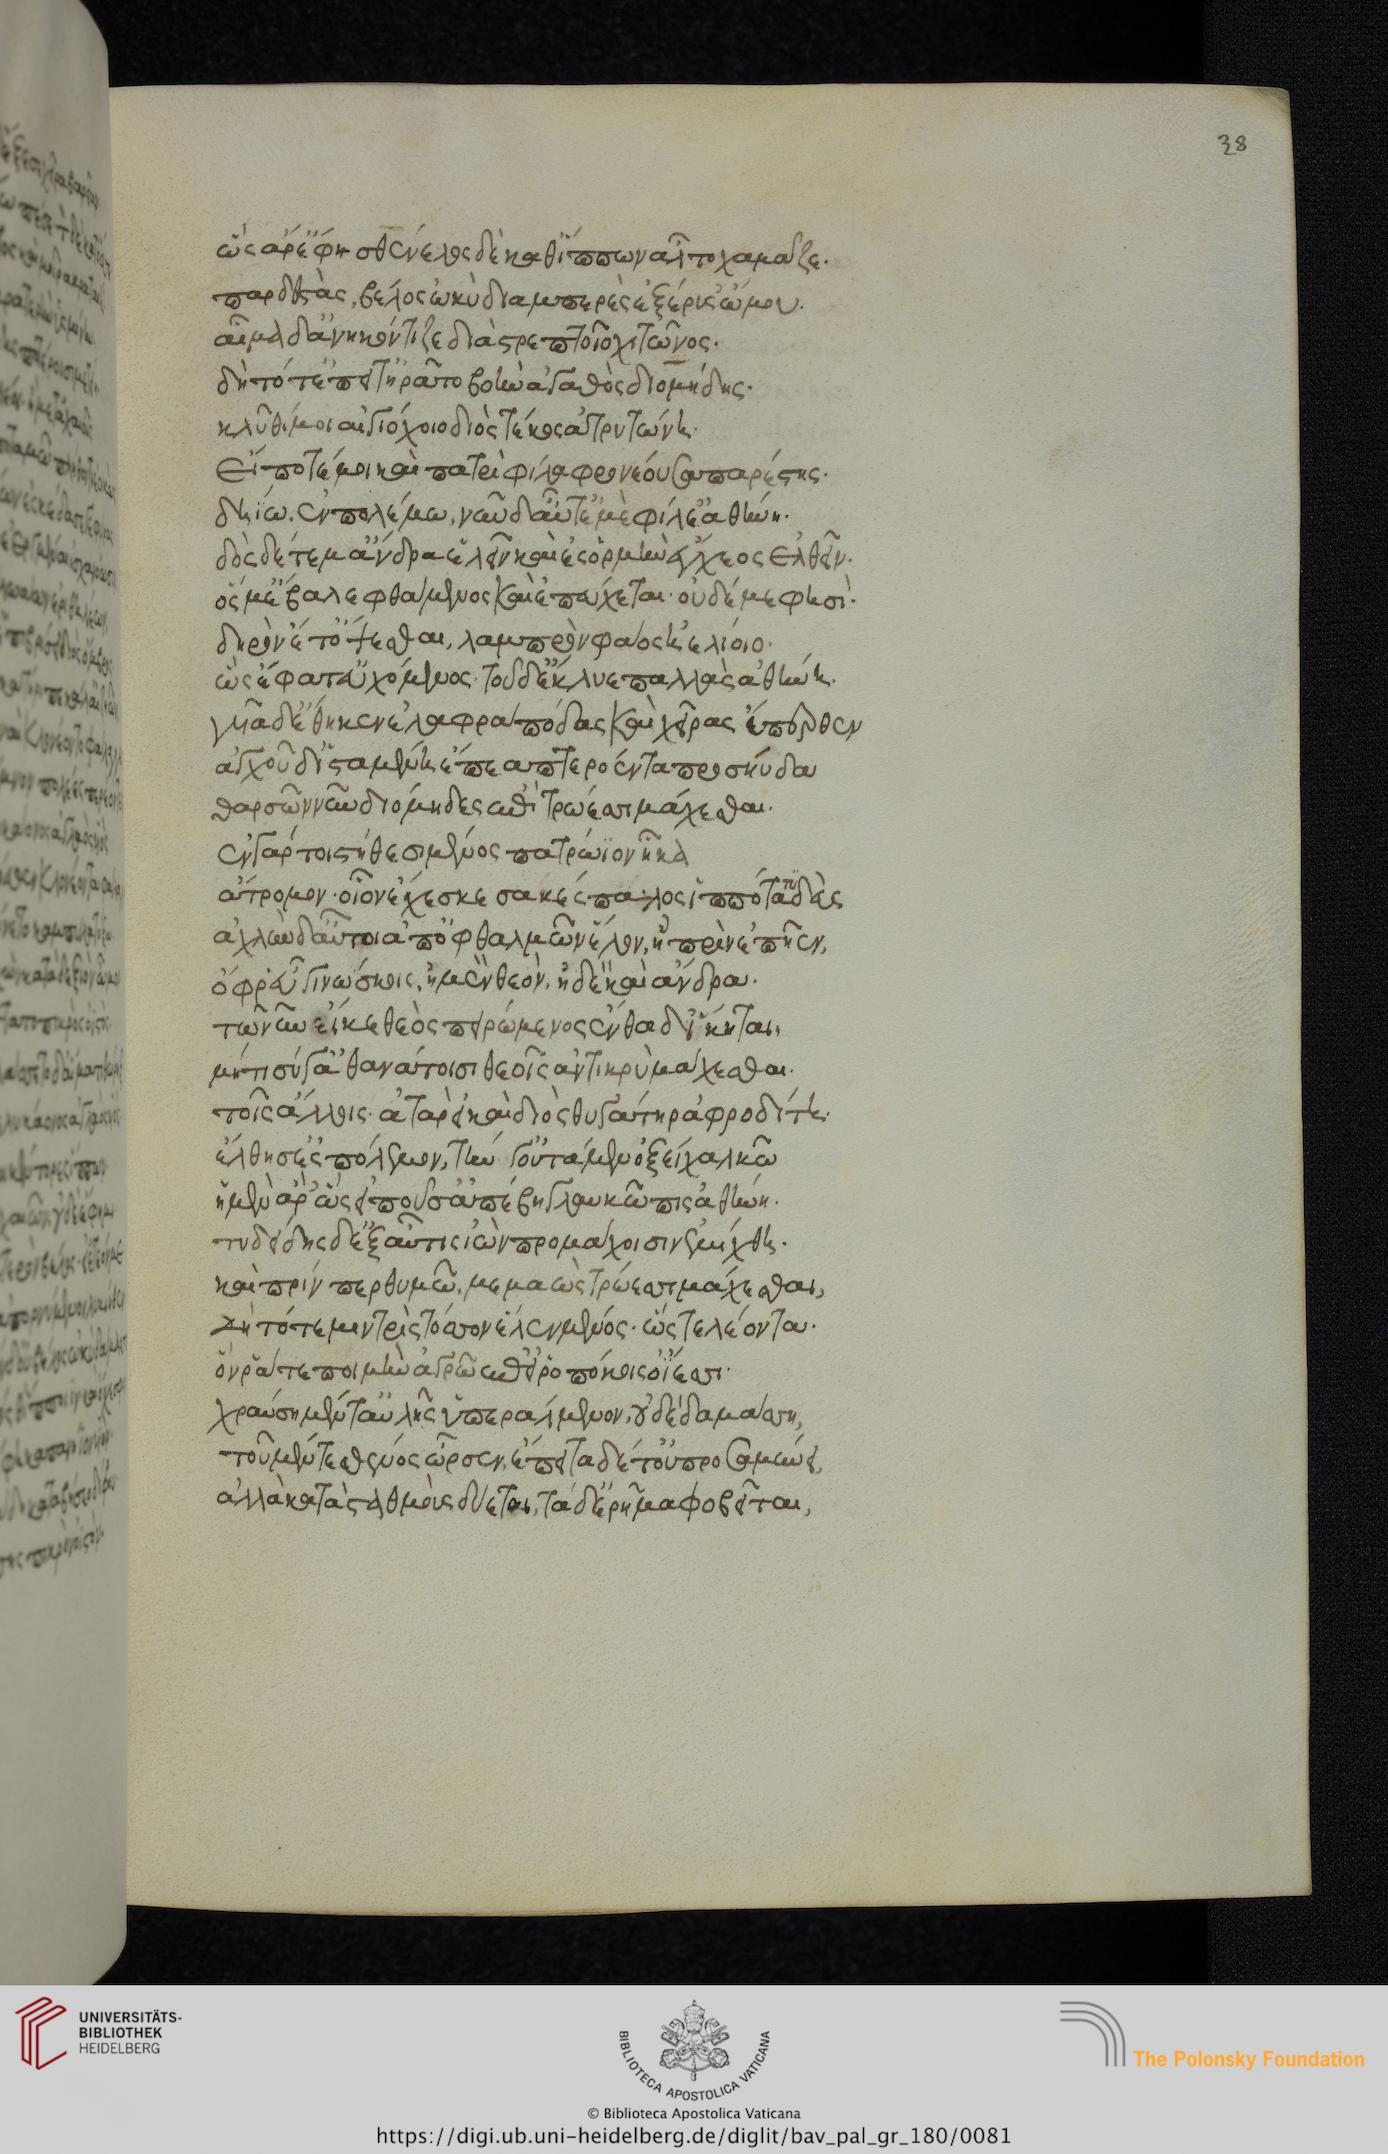 38
ὣς ἄρ' ἔφη σθένελος δὲ καθ' ἵππων ἆλτο χαμᾶζε.
παρ δὲ στὰς, βέλος ὠκὺ διαμπερὲς ἐξέρυσ' ὤμου.
αἷμα δ' ἀνηκόντιζε διὰ στρεπτοῖο χιτῶνος.
δὴ τότ' ἔπειτ' ἠρᾶτο βοὴν ἀγαθὸς διομήδης.
κλῦθί μοι αἰγιόχοιο διὸς τέκος ἀτρυτώνη.
Εἴ ποτέ μοι καὶ πατρὶ φίλα φρονέουσα παρέστης.
δηΐω ἐν πολέμω, νῦν δ' αὖτ' ἐμὲ φίλε' ἀθήνη.
δὸς δέ τέ μ' ἄνδρα ἑλεῖν καὶ ἐς ὁρμὴν ἔγχεος ἐλθεῖν.
ὅς μ' ἔβαλε φθάμενος καὶ ἐπεύχεται. οὐδέ με φησὶ.
δηρὸν ἔτ' ὄψεσθαι, λαμπρὸν φάος ἠελίοιο.
ὣς ἔφατ' εὐχόμενος. τοῦ δ' ἔκλυε παλλὰς ἀθήνη.
γυῖα δ' ἔθηκεν ἐλαφρὰ πόδας καὶ χεῖρας ὕπερθεν
ἀγχοῦ δ' ἱσταμένη ἔπεα πτερόεντα προσηύδα
θαρσῶν νῦν διόμηδες ἐπὶ τρώεσσι μάχεσθαι.
ἐν γάρ τοι στήθεσι μένος πατρώϊον ἧκα
ἄτρομον. οἷον ἔχεσκε σακέσπαλος ἱππότα τυδεὺς
ἀχλὺν δ' αὖ τοι ἀπ' ὀφθαλμῶν ἕλον, ἣ πρὶν ἐπῆεν,
ὄφρ' εὖ γινώσκοις, ἠμὲν θεὸν, ἠδὲ καὶ ἄνδρα.
τῶ νῦν εἴ κε θεὸς πειρώμενος ἐνθάδ' ἵκηται,
μήτι σύ γ' ἀθανάτοισι θεοῖς ἀντικρὺ μάχεσθαι.
τοῖς ἄλλοις. ἀτὰρ εἴ κε διὸς θυγάτηρ ἀφροδίτη.
ἔλθησ' ἐς πόλεμον, τήν γ' οὐτάμεν ὀξέϊ χαλκῶ
ἡ μὲν ἄρ' ὣς εἰποῦσ' ἀπέβη γλαυκῶπις ἀθήνη.
τυδείδης δ' ἐξαῦτις ἰὼν προμάχοισιν ἐμίχθη.
καὶ πρίν περ θυμῶ μεμαὼς τρώεσσι μάχεσθαι,
δὴ τότε μιν τρὶς τόσσον ἕλεν μένος. ὥς τε λέοντα.
ὅν ῥά τε ποιμὴν ἀγρῶ ἐπ' εἰροπόκοις ὀΐεσσι.
χραύση μέν τ' αὐλῆς ὑπεράλμενον, οὐδὲ δαμάσση,
τοῦ μέν τε σθένος ὦρσεν, ἔπειτα δέ τ' οὐ προσαμύνει,
ἀλλὰ κατὰ σταθμοὺς δύεται, τὰ δ' ἐρῆμα φοβεῖται,
UNIVERSITÄTS-
BIBLIOTHEK
HEIDELBERG
BIBLIOTECA APOSTOLICA VATICANA
The Polonsky Foundation
© Biblioteca Apostolica Vaticana
https://digi.ub.uni-heidelberg.de/diglit/bav_pal_gr_180/0081